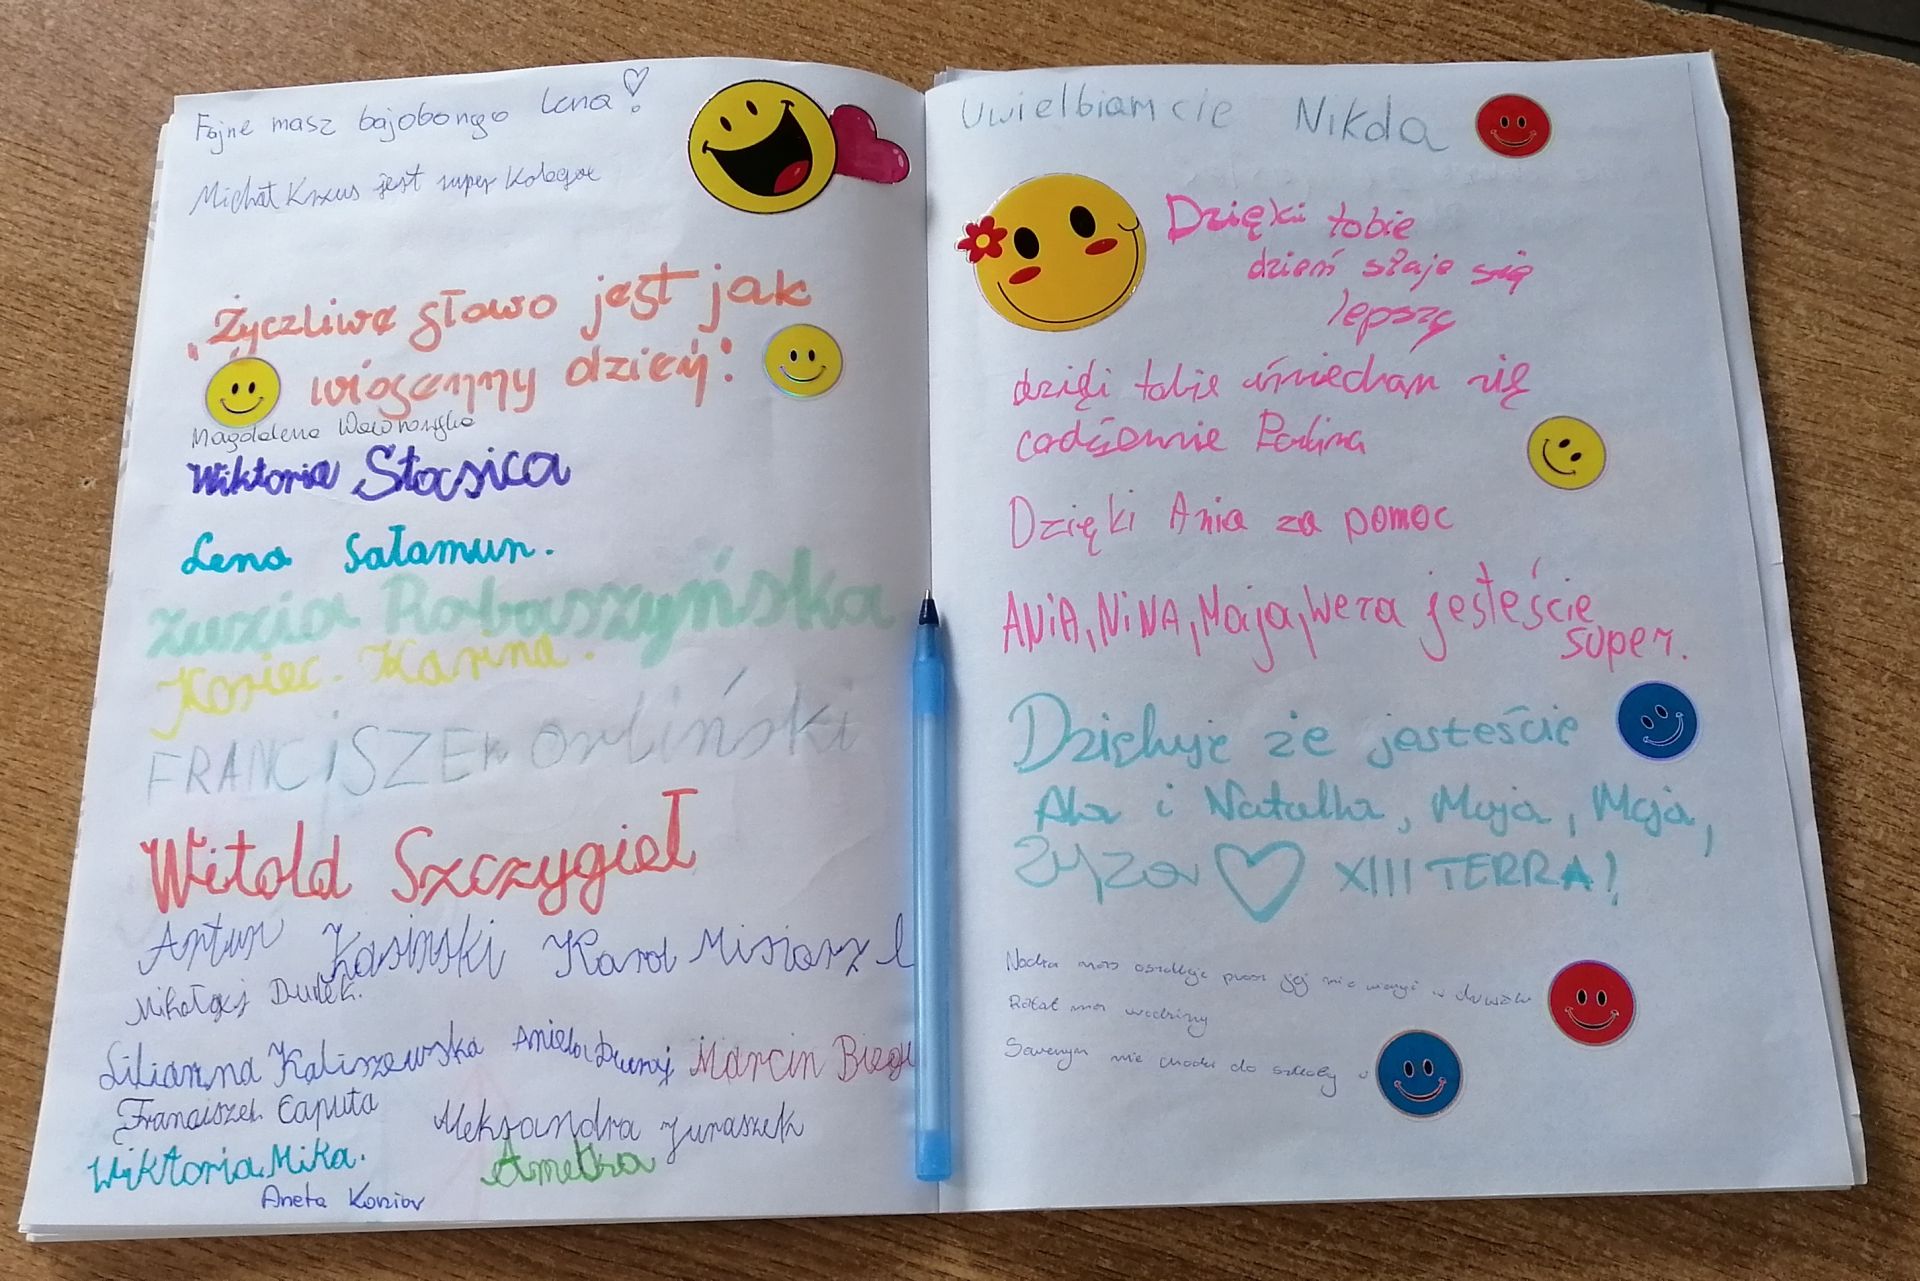 Fajne masz bajobongo Lena!
Michał Krzus jest super kolegą
"Życzliwe słowo jest jak
wiosenny dzień".
Magdalena
Wiktoria Stasica
Lena Sałamun.
zuzia Rabaszyńska
Koniec. Karina.
FRANCiSZEk Orliński
Witold Szczygieł
Artur Kasiński Karol Misiarz
Mikołaj Dudek.
Lilianna Kaliszewska Aniela Duraj Marcin
Franciszek Caputa Aleksandra Juraszek
Wiktoria Mika. Amelka
Aneta Konior
Uwielbiam cie Nikola
Dzięki tobie
dzień staje się
lepszy
dzięi tobie uśmiecham się
codziennie Paulina
Dzięki Ania za pomoc
ANiA, NiNA, Maja, Wera jesteście
super.
Dziękuje że jesteście
Ala i Natalka, Maja, Maja,
Zyza XIII TERRA!
nie
Rafał ma urodziny
nie chodzi do szkoły